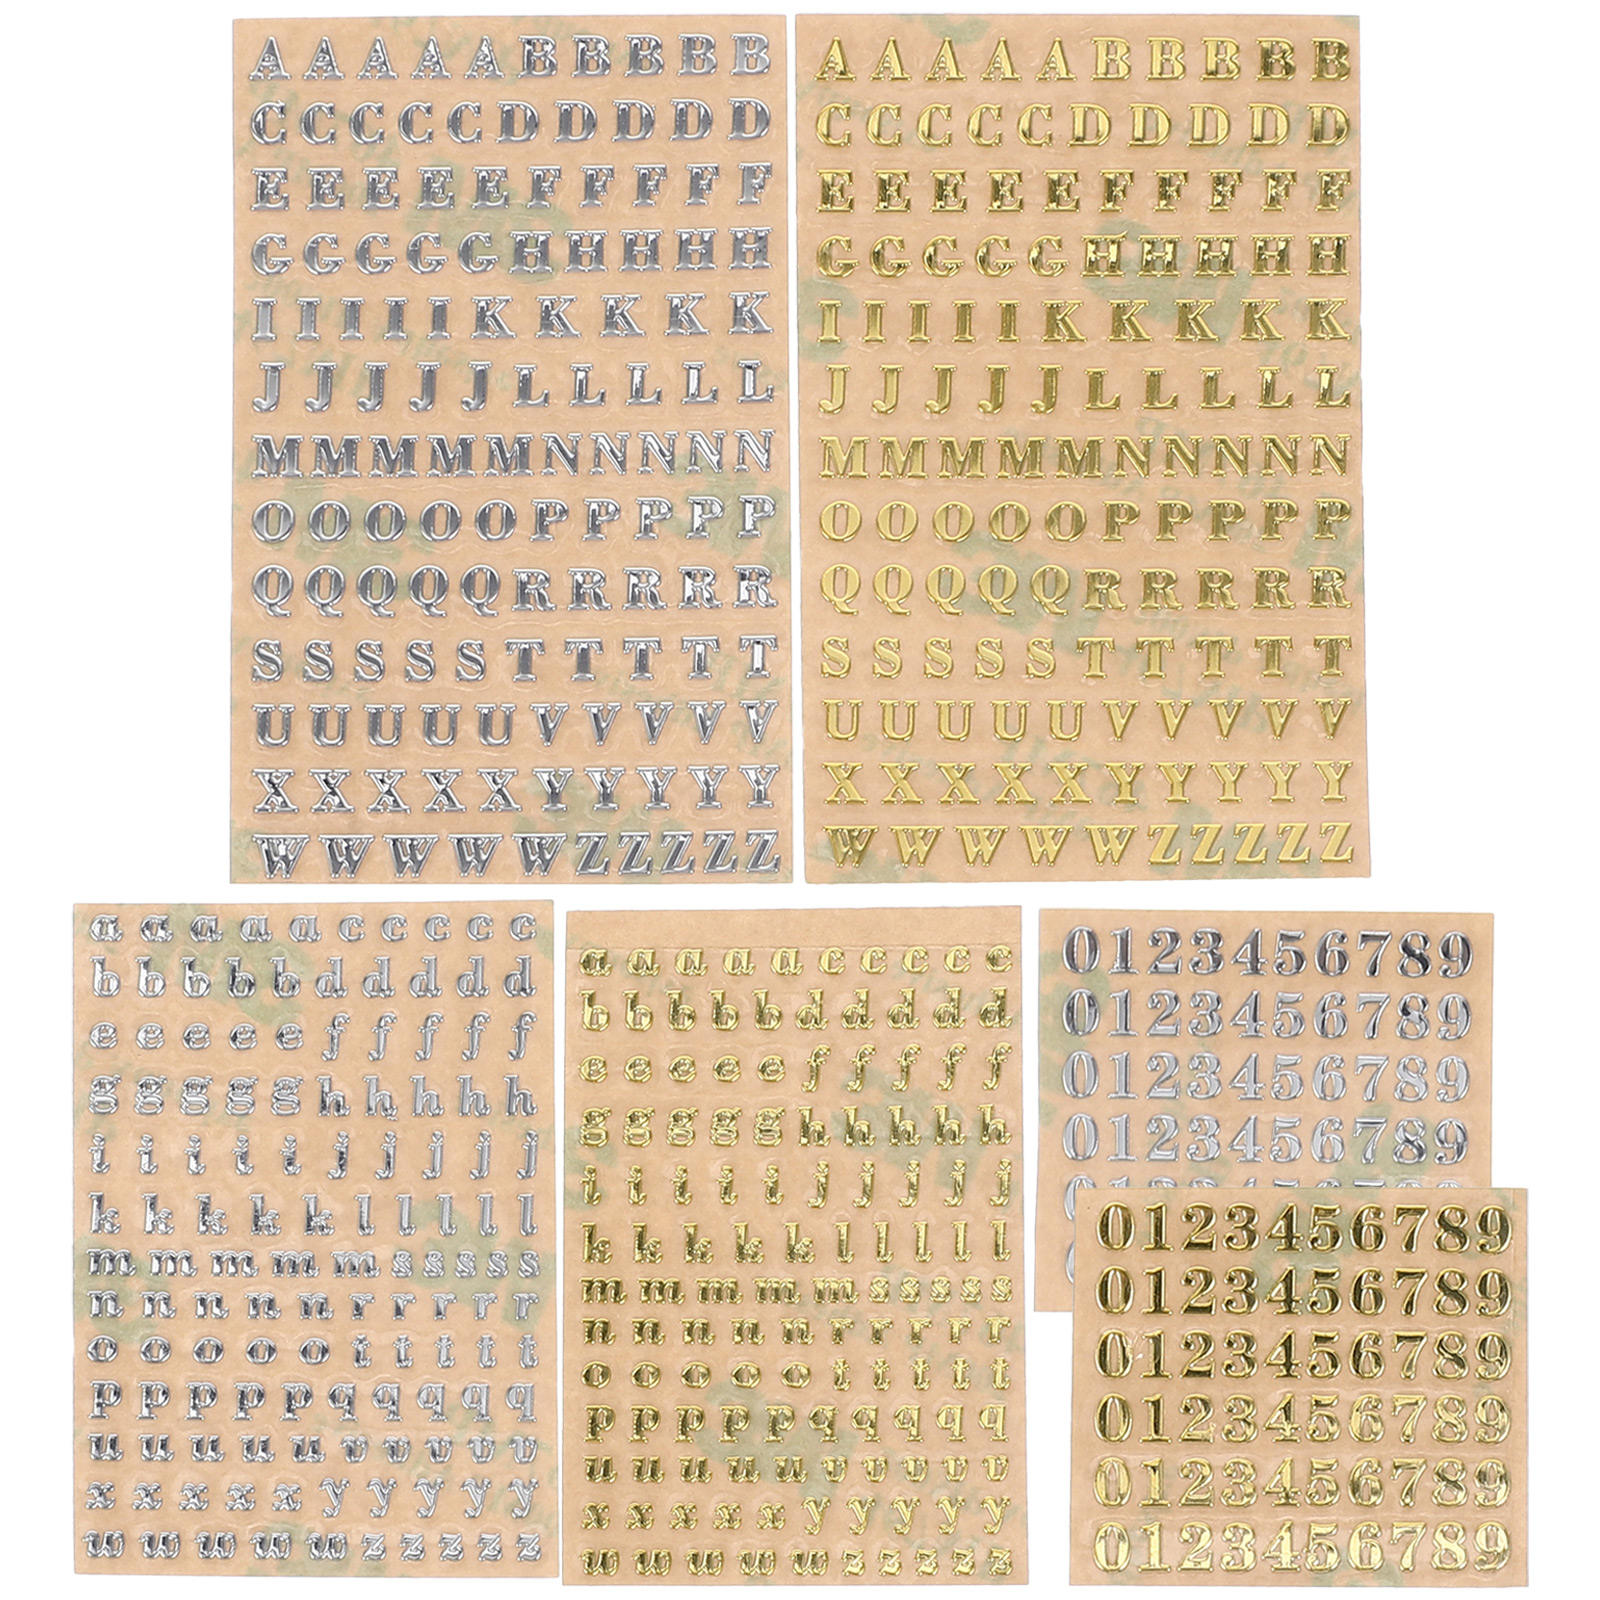 A A A A A B B B B B
C C C C C D D D D D
E E E E E F F F F F
G G G G G H H H H H
I I I I I K K K K K
J J J J J L L L L L
M M M M M N N N N N
O O O O O P P P P P
Q Q Q Q Q R R R R R
S S S S S T T T T T
U U U U U V V V V V
X X X X X Y Y Y Y Y
W W W W W Z Z Z Z Z
A A A A A B B B B B
C C C C C D D D D D
E E E E E F F F F F
G G G G G H H H H H
I I I I I K K K K K
J J J J J L L L L L
M M M M M N N N N N
O O O O O P P P P P
Q Q Q Q Q R R R R R
S S S S S T T T T T
U U U U U V V V V V
X X X X X Y Y Y Y Y
W W W W W Z Z Z Z Z
a a a a a c c c c c
b b b b b d d d d d
e e e e e f f f f f
g g g g g h h h h h
i i i i i j j j j j
k k k k k l l l l l
m m m m m s s s s s
n n n n n r r r r r
o o o o o t t t t t
p p p p p q q q q q
u u u u u v v v v v
x x x x x y y y y y
w w w w w z z z z z
a a a a a c c c c c
b b b b b d d d d d
e e e e e f f f f f
g g g g g h h h h h
i i i i i j j j j j
k k k k k l l l l l
m m m m m s s s s s
n n n n n r r r r r
o o o o o t t t t t
p p p p p q q q q q
u u u u u v v v v v
x x x x x y y y y y
w w w w w z z z z z
0123456789
0123456789
0123456789
0123456789
0123456789
0123456789
0123456789
0123456789
0123456789
0123456789